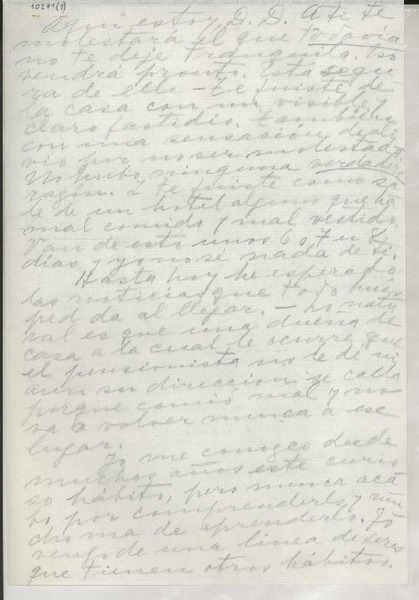 10271(1)
Aquí estoy, D. D. A ti te
molestará el que todavía
no te deje tranquila. Eso
vendrá pronto. Está segu
ra de ello. - Te fuiste de
la casa con un visible y
claro fastidio. También
con una sensación de ali
vio por no ser molestada.
No hubo ninguna verdadera
razón. Y te fuiste como sa
le de un hotel alguno que ha
mal comido y mal vestido.
Van de esto unos 6 o 7 u 8
días y yo no sé nada de ti.
Hasta hoy he esperado
las noticias que todo hués
ped da al llegar. - Lo natu
ral es que una dueña de
casa a la cual le ocurre que
el pensionista no le dé ni
aun su dirección se calla
porque comió mal y no
va a volver nunca a ese
lugar.
Yo me conozco desde
muchos años este curio
so hábito, pero nunca aca
bo por comprenderlo y mu
cho ma de aprenderlo. Yo
vengo de una línea de seres
que tienen otros hábitos.